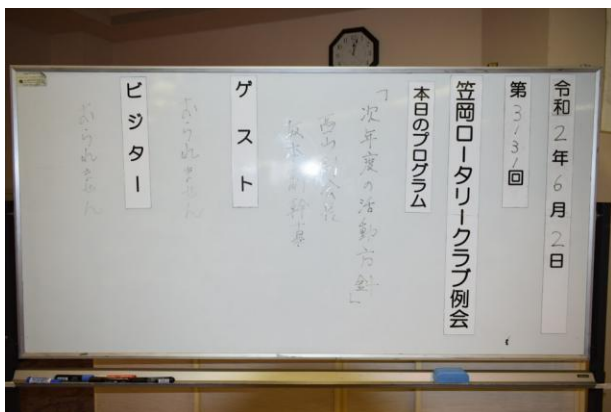 令和2年6月2日
第3131回
笠岡ロータリークラブ例会
本日のプログラム
「次年度の活動方針」
西山副会長
坂本副幹事
ゲスト
おられません
ビジター
おられません